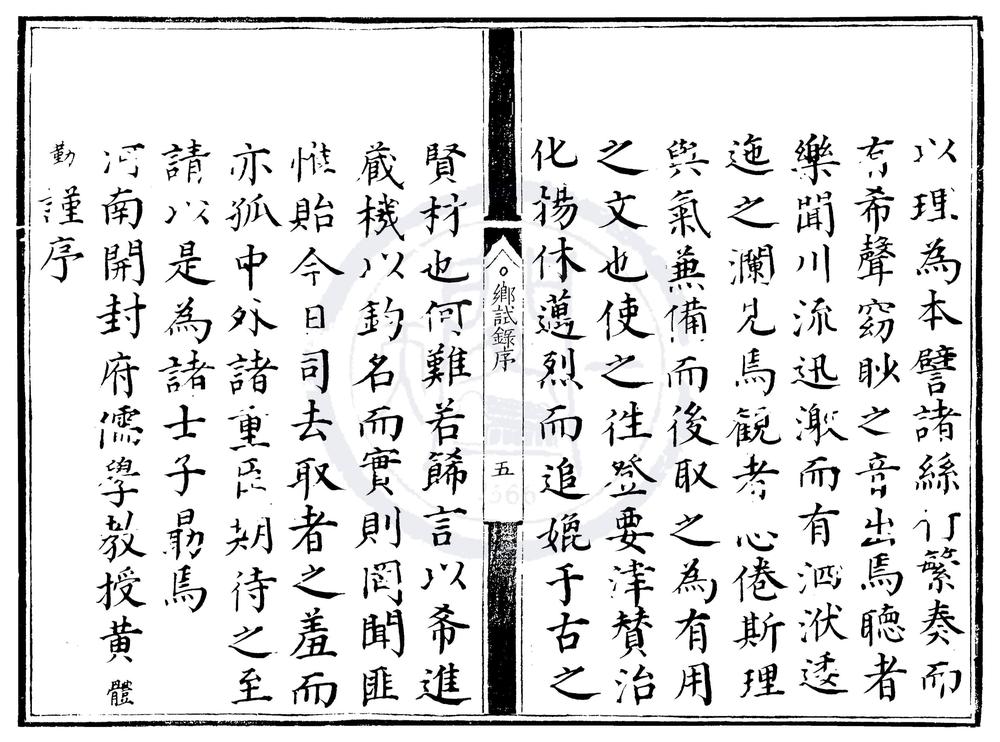 以理為本譬諸絲竹繁奏而
有希聲窈眇之音出焉聽者
樂聞川流迅激而有泗洑逶
迤之瀾見焉観者心倦斯理
與氣兼備而後取之為有用
之文也使之徃登要津賛治
化揚休邁烈而追媲于古之
鄉試錄序
五
賢材也何難若餙言以希進
蔵機以釣名而實則罔聞匪
惟貽今日司去取者之羞而
亦孤中外諸重臣期待之至
請以是為諸士子勗焉
河南開封府儒學教授黄體
勤謹序